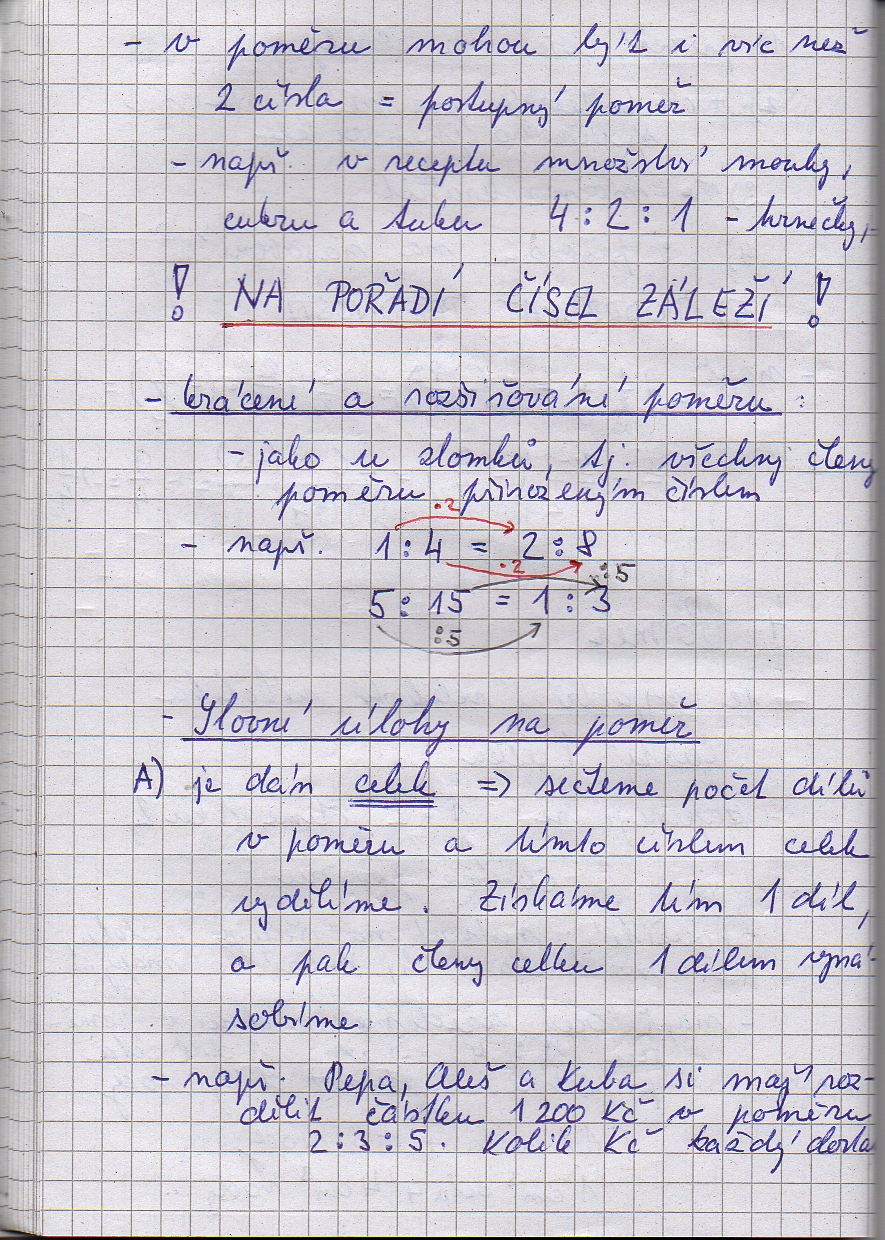 - v poměru mohou být i víc než
2 čísla = postupný poměr
- např. v receptu množství mouky,
cukru a tuku 4 : 2 : 1 - hrnečky,
! NA POŘADÍ ČÍSEL ZÁLEŽÍ !
- krácení a rozšiřování poměru :
- jako u zlomků, tj. všechny členy
poměru přirozeným číslem
·2
- např. 1 : 4 = 2 : 8
·2 :5
5 : 15 = 1 : 3
:5
- Slovní úlohy na poměr
A) je dán celek => sečteme počet dílů
v poměru a tímto číslem celek
vydělíme. Získáme tím 1 díl,
a pak členy celku 1 dílem vyná-
sobíme.
- např. Pepa, Aleš a Kuba si mají roz-
dělit částku 1 200 Kč v poměru
2 : 3 : 5. Kolik Kč každý dosta